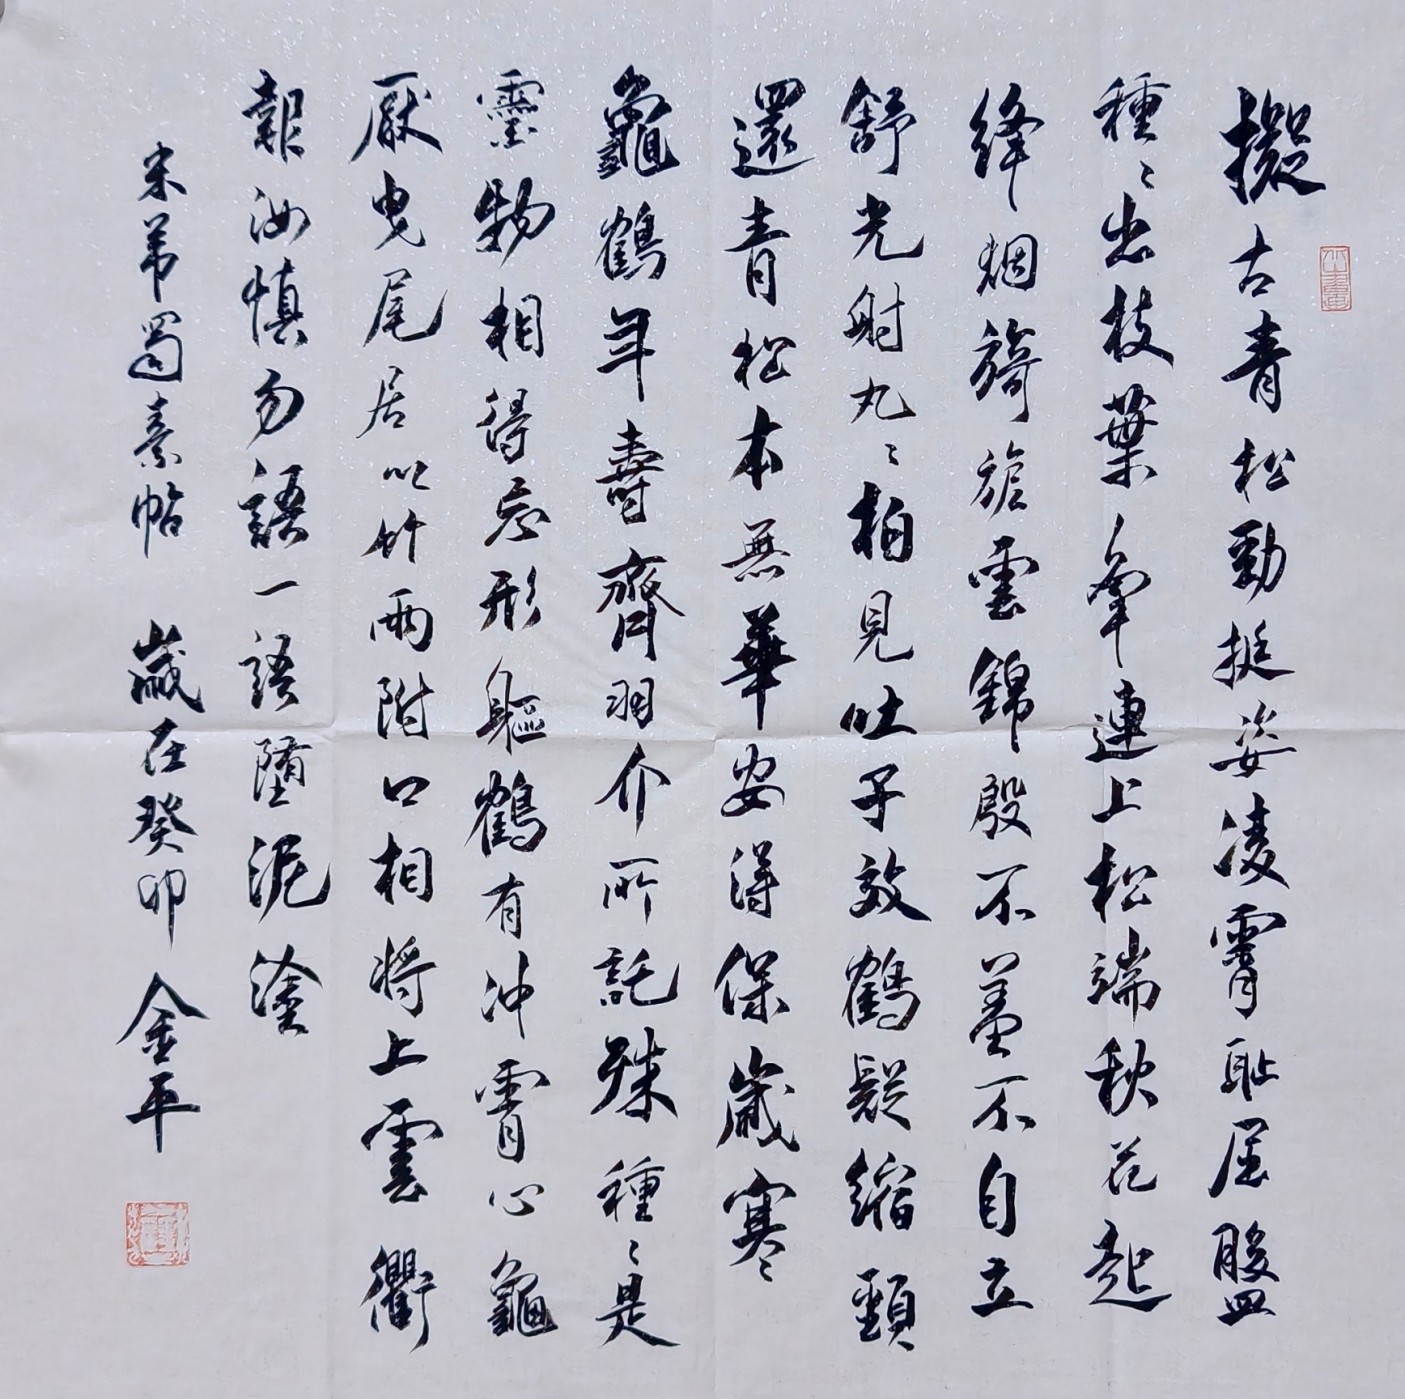 擬古青松勁挺姿凌霄恥屈盤
種〻出枝葉牽連上松端秋花起
絳烟旖旎雲錦殷不羞不自立
舒光射丸〻柏見吐子效鶴疑縮頸
還青松本無華安得保歲寒
龜鶴年壽齊羽介所託殊種〻是
靈物相得忘形軀鶴有冲霄心龜
厭曳尾居以竹兩附口相將上雲衢
報汝慎勿語一語墮泥塗
米芾蜀素帖 歲在癸卯 金平